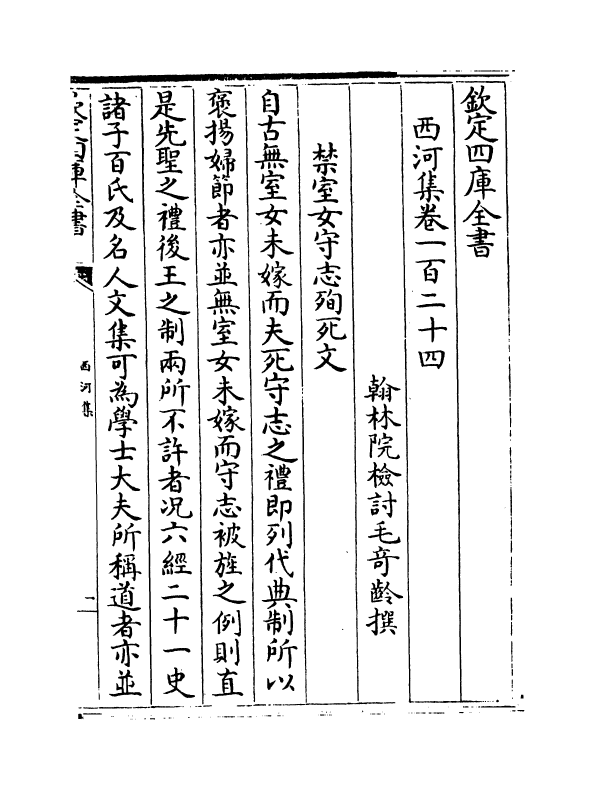 欽定四庫全書
西河集卷一百二十四
翰林院檢討毛竒齡撰
禁室女守志殉死文
自古無室女未嫁而夫死守志之禮即列代典制所以
褒揚婦節者亦並無室女未嫁而守志被旌之例則直
是先聖之禮後王之制兩所不許者况六經二十一史
諸子百氏及名人文集可為學士大夫所稱道者亦並
欽定四庫全書
西河集
一